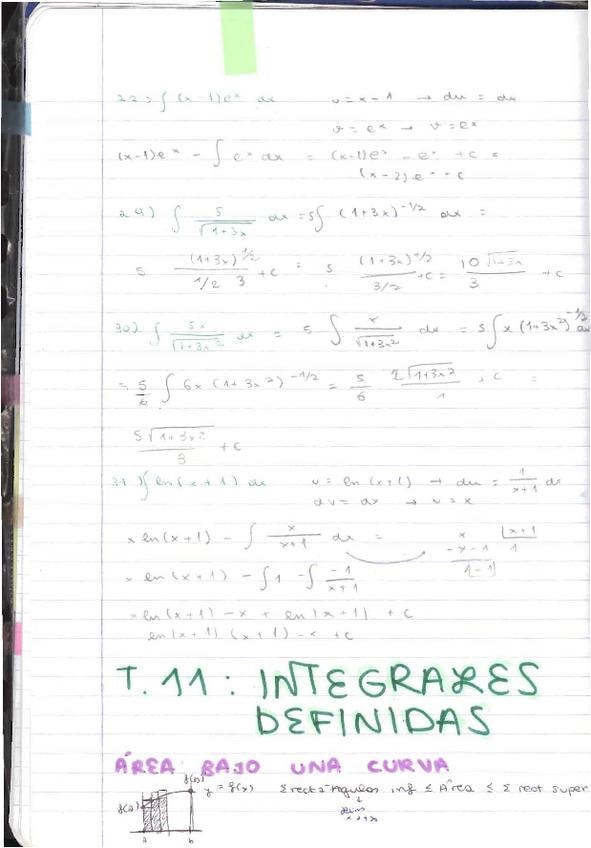 22) ∫ (x-1)eˣ dx    u = x-1 → du = dx
v = eˣ → v = eˣ
(x-1)eˣ - ∫ eˣ dx = (x-1)eˣ - eˣ + c =
(x-2)eˣ + c
29) ∫ 5/√(1+3x) dx = 5∫ (1+3x)^(-1/2) dx =
5 (1+3x)^(1/2)/(1/2 · 3) + c = 5 (1+3x)^(1/2)/(3/2) + c = 10√(1+3x)/3 + c
30) ∫ 5x/√(1+3x²) dx = 5 ∫ x/√(1+3x²) dx = 5∫ x(1+3x²)^(-1/2) dx
= 5/6 ∫ 6x (1+3x²)^(-1/2) = 5/6 2√(1+3x²)/1 + c =
5√(1+3x²)/3 + c
31) ∫ ln(x+1) dx    u = ln(x+1) → du = 1/(x+1) dx
dv = dx → v = x
x ln(x+1) - ∫ x/(x+1) dx =    x |x+1
-x-1    1
x ln(x+1) - ∫1 - ∫ -1/(x+1)
x ln(x+1) - x + ln|x+1| + c
ln|x+1| (x+1) - x + c
T.11: INTEGRALES
DEFINIDAS
ÁREA BAJO UNA CURVA
f(b)
f(a) y = f(x) Σ rectángulos inf ≤ Área ≤ Σ rect super
a b